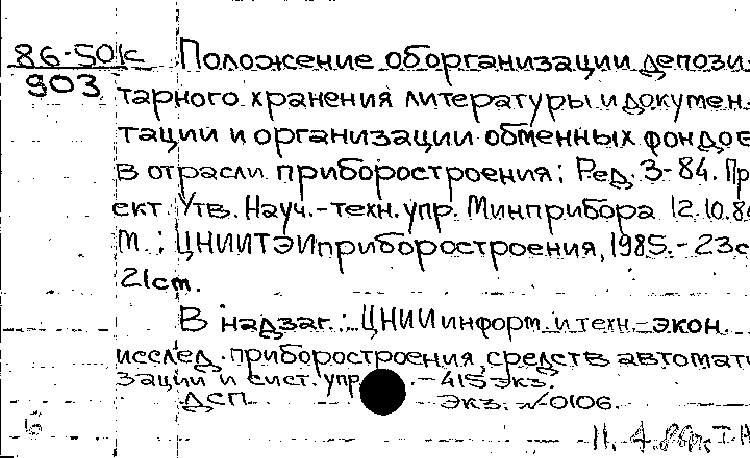 86-50к Положение оборганизации депози-
903 тарного хранения литературы и докумен.
тации и организации обменных фондов
в отрасли приборостроения: Ред. 3-84. Пр
ект. Утв. Науч.-техн. упр. Минприбора 12.10.84
М.: ЦНИИТЭИприборостроения, 1985.-23с
21cm.
В надзаг.: ЦНИИ информ. и техн.-экон.
исслед. приборостроения, средств автомати
зации и сист. упр. - 415 экз.
ДСП. Экз. №0106.
11. 4.86